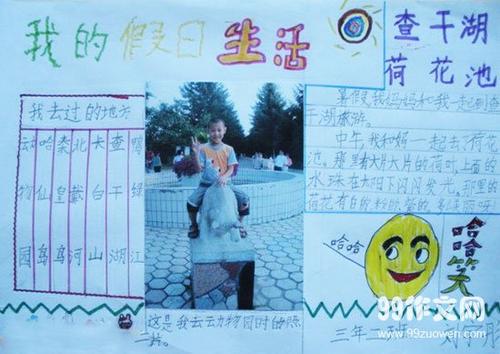 我的假日生活
查干湖
荷花池
我去过的地方
动物园
哈仙岛
秦皇岛
北戴河
长白山
查干湖
鸭绿江
暑假我妈妈和我一起到查
干湖旅游。
中午,我和妈一起去荷花
池。那里有大片大片的荷叶,上面的
水珠在太阳下闪闪发光。那里的
荷花有白的粉
哈哈
哈哈笑
这是我去动物园时的照
片。
三年二班
99作文网
www.99zuowen.com